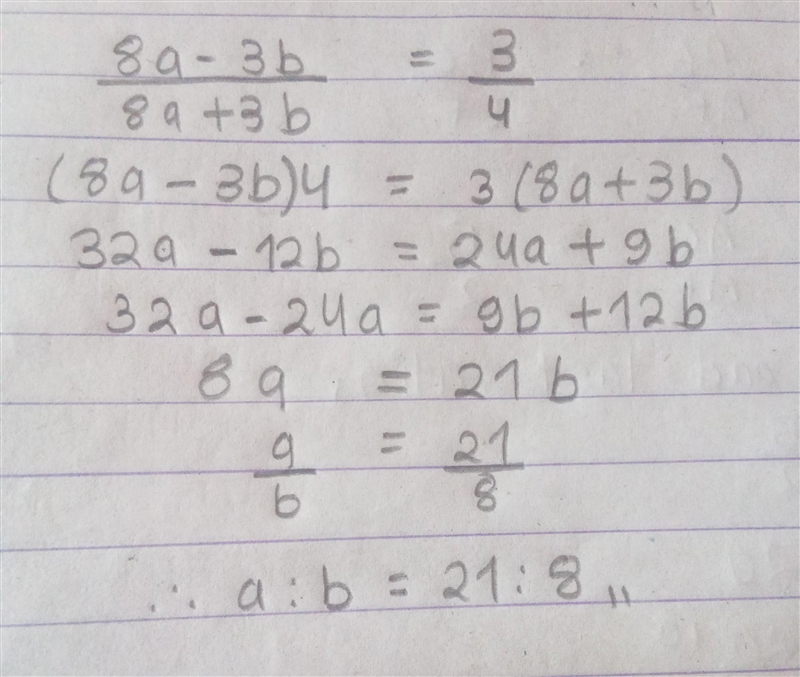 8a - 3b / 8a + 3b = 3 / 4
(8a - 3b)4 = 3(8a + 3b)
32a - 12b = 24a + 9b
32a - 24a = 9b + 12b
8a = 21b
a / b = 21 / 8
∴ a : b = 21 : 8 ,,